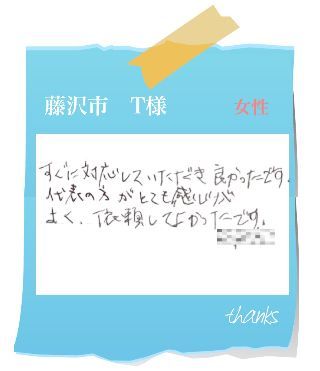 藤沢市 T様 女性
すぐに対応していただき良かったです。
代表の方がとても感じが
よく、依頼してよかったです。
thanks